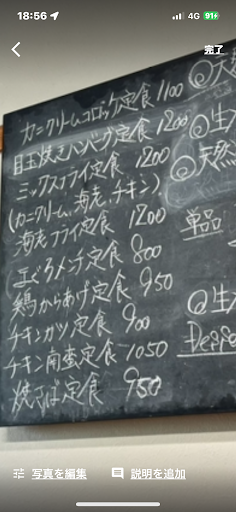 18:56
4G 91
完了
カニクリームコロッケ定食 1100
目玉焼きハンバーグ定食 1200
ミックスフライ定食 1200
(カニクリーム、海老、チキン)
海老フライ定食 1200
まぐろメンチ定食 800
鶏からあげ定食 950
チキンカツ定食 900
チキン南蛮定食 1050
焼さば定食 950
◎天然
◎生
◎天然
単品
◎生
写真を編集
説明を追加